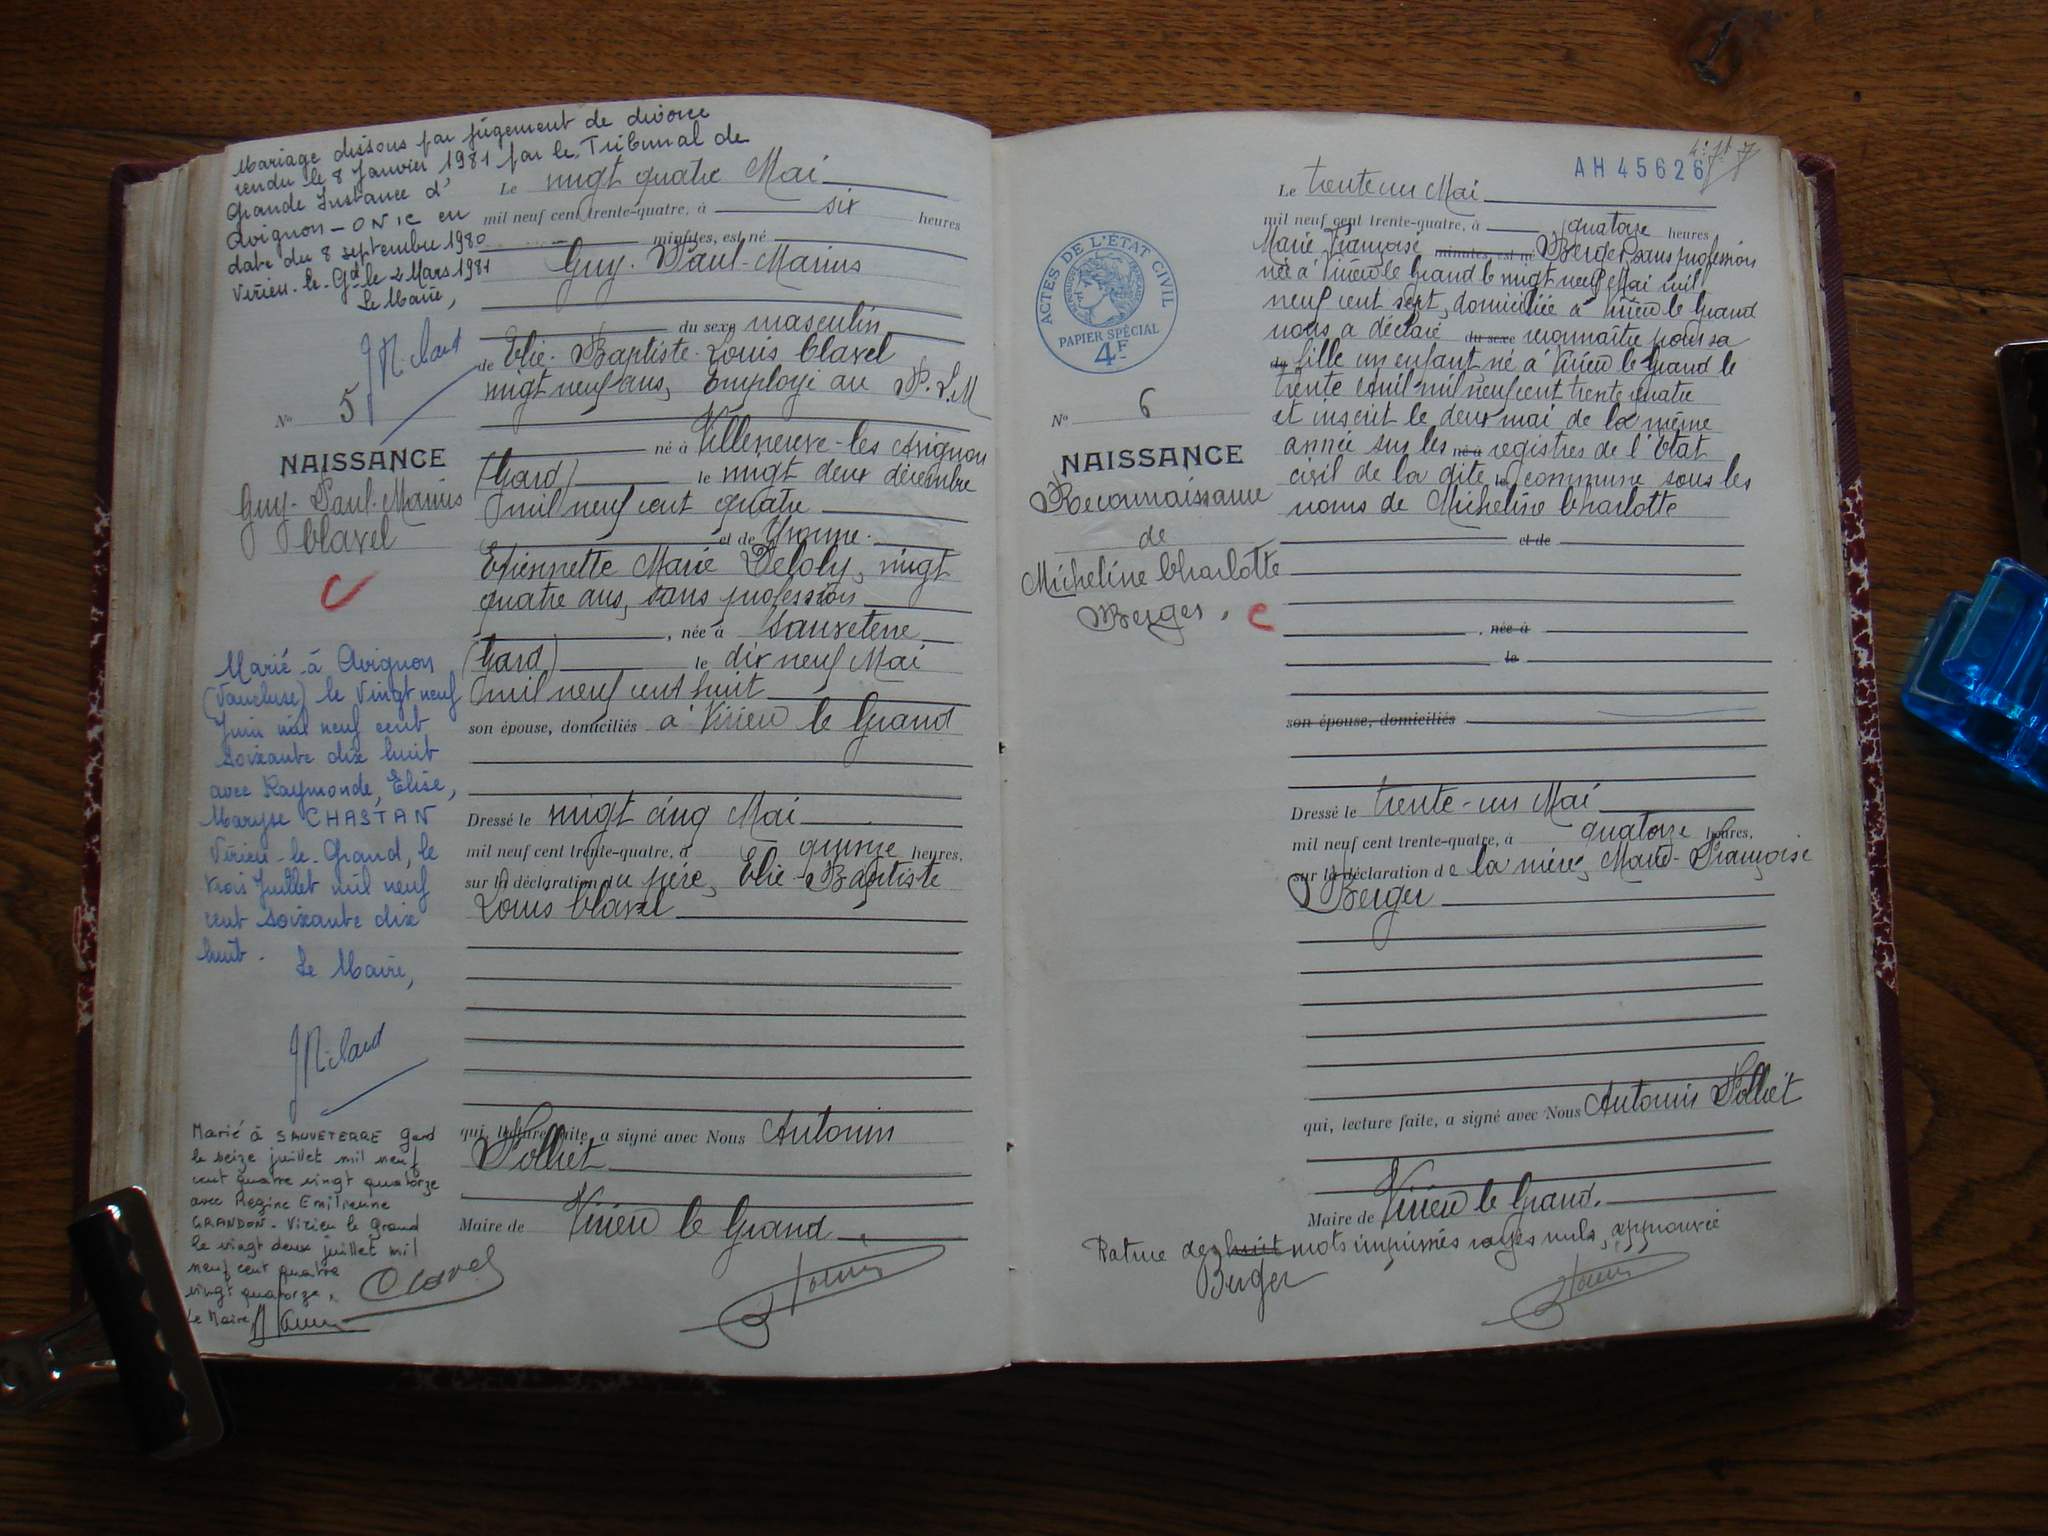 Mariage dissous par jugement de divorce
rendu le 8 Janvier 1981 par le Tribunal de
Grande Instance d'
Avignon - ONIC en
date du 8 septembre 1980
Virieu-le-Gd le 2 Mars 1981
Le Maire,
No 5
NAISSANCE
Guy-Paul-Marius
Clavel
C
Marié à Avignon
(Vaucluse) le Vingt neuf
Juin mil neuf cent
soixante dix huit
avec Raymonde, Elise,
Maryse CHASTAN
Virieu-le-Grand, le
trois Juillet mil neuf
cent soixante dix
huit.
Le Maire,
Marié à SAUVETERRE Gard
le seize juillet mil neuf
cent quatre vingt quatorze
avec Régine Emilienne
GRANDON - Virieu le Grand
le vingt deux juillet mil
neuf cent quatre
vingt quatorze,
Le Maire
Clavel
Le vingt quatre Mai
mil neuf cent trente-quatre, à six heures
minutes, est né
Guy-Paul-Marius
du sexe masculin
de Elie-Baptiste-Louis Clavel
vingt neuf ans, Employé au P.L.M
né à Villeneuve-les Avignon
(Gard) le vingt deux décembre
mil neuf cent quatre
et de Yvonne-
Etiennette Marie Deloly, vingt
quatre ans, sans profession
, née à Sauveterre
(Gard) le dix neuf Mai
mil neuf cent huit
son épouse, domiciliés à Virieu le Grand
Dressé le vingt cinq Mai
mil neuf cent trente-quatre, à quinze heures,
sur la déclaration du père, Elie-Baptiste
Louis Clavel
qui, lecture faite, a signé avec Nous Antonin
Polliet
Maire de Virieu le Grand
AH 45626
ACTES DE L'ÉTAT CIVIL
PAPIER SPÉCIAL
4F
No 6
NAISSANCE
Reconnaissance
de
Micheline Charlotte
Berger.
C
Le trente un Mai
mil neuf cent trente-quatre, à quatorze heures
Marie Françoise minutes, est né Berger, sans profession
née à Virieu le Grand le vingt neuf Mai mil
neuf cent sept, domiciliée à Virieu le Grand
nous a déclaré du sexe reconnaître pour sa
de fille un enfant né à Virieu le Grand le
trente avril mil neuf cent trente quatre
et inscrit le deux mai de la même
année sur les né à registres de l'état
civil de la dite le commune sous les
noms de Micheline Charlotte
et de
, née à
le
son épouse, domiciliés
Dressé le trente-un Mai
mil neuf cent trente-quatre, à quatorze heures,
sur la déclaration de la mère, Marie-Françoise
Berger
qui, lecture faite, a signé avec Nous Antonin Polliet
Maire de Virieu le Grand.
Rature de huit mots imprimés rayés nuls, approuvée
Berger